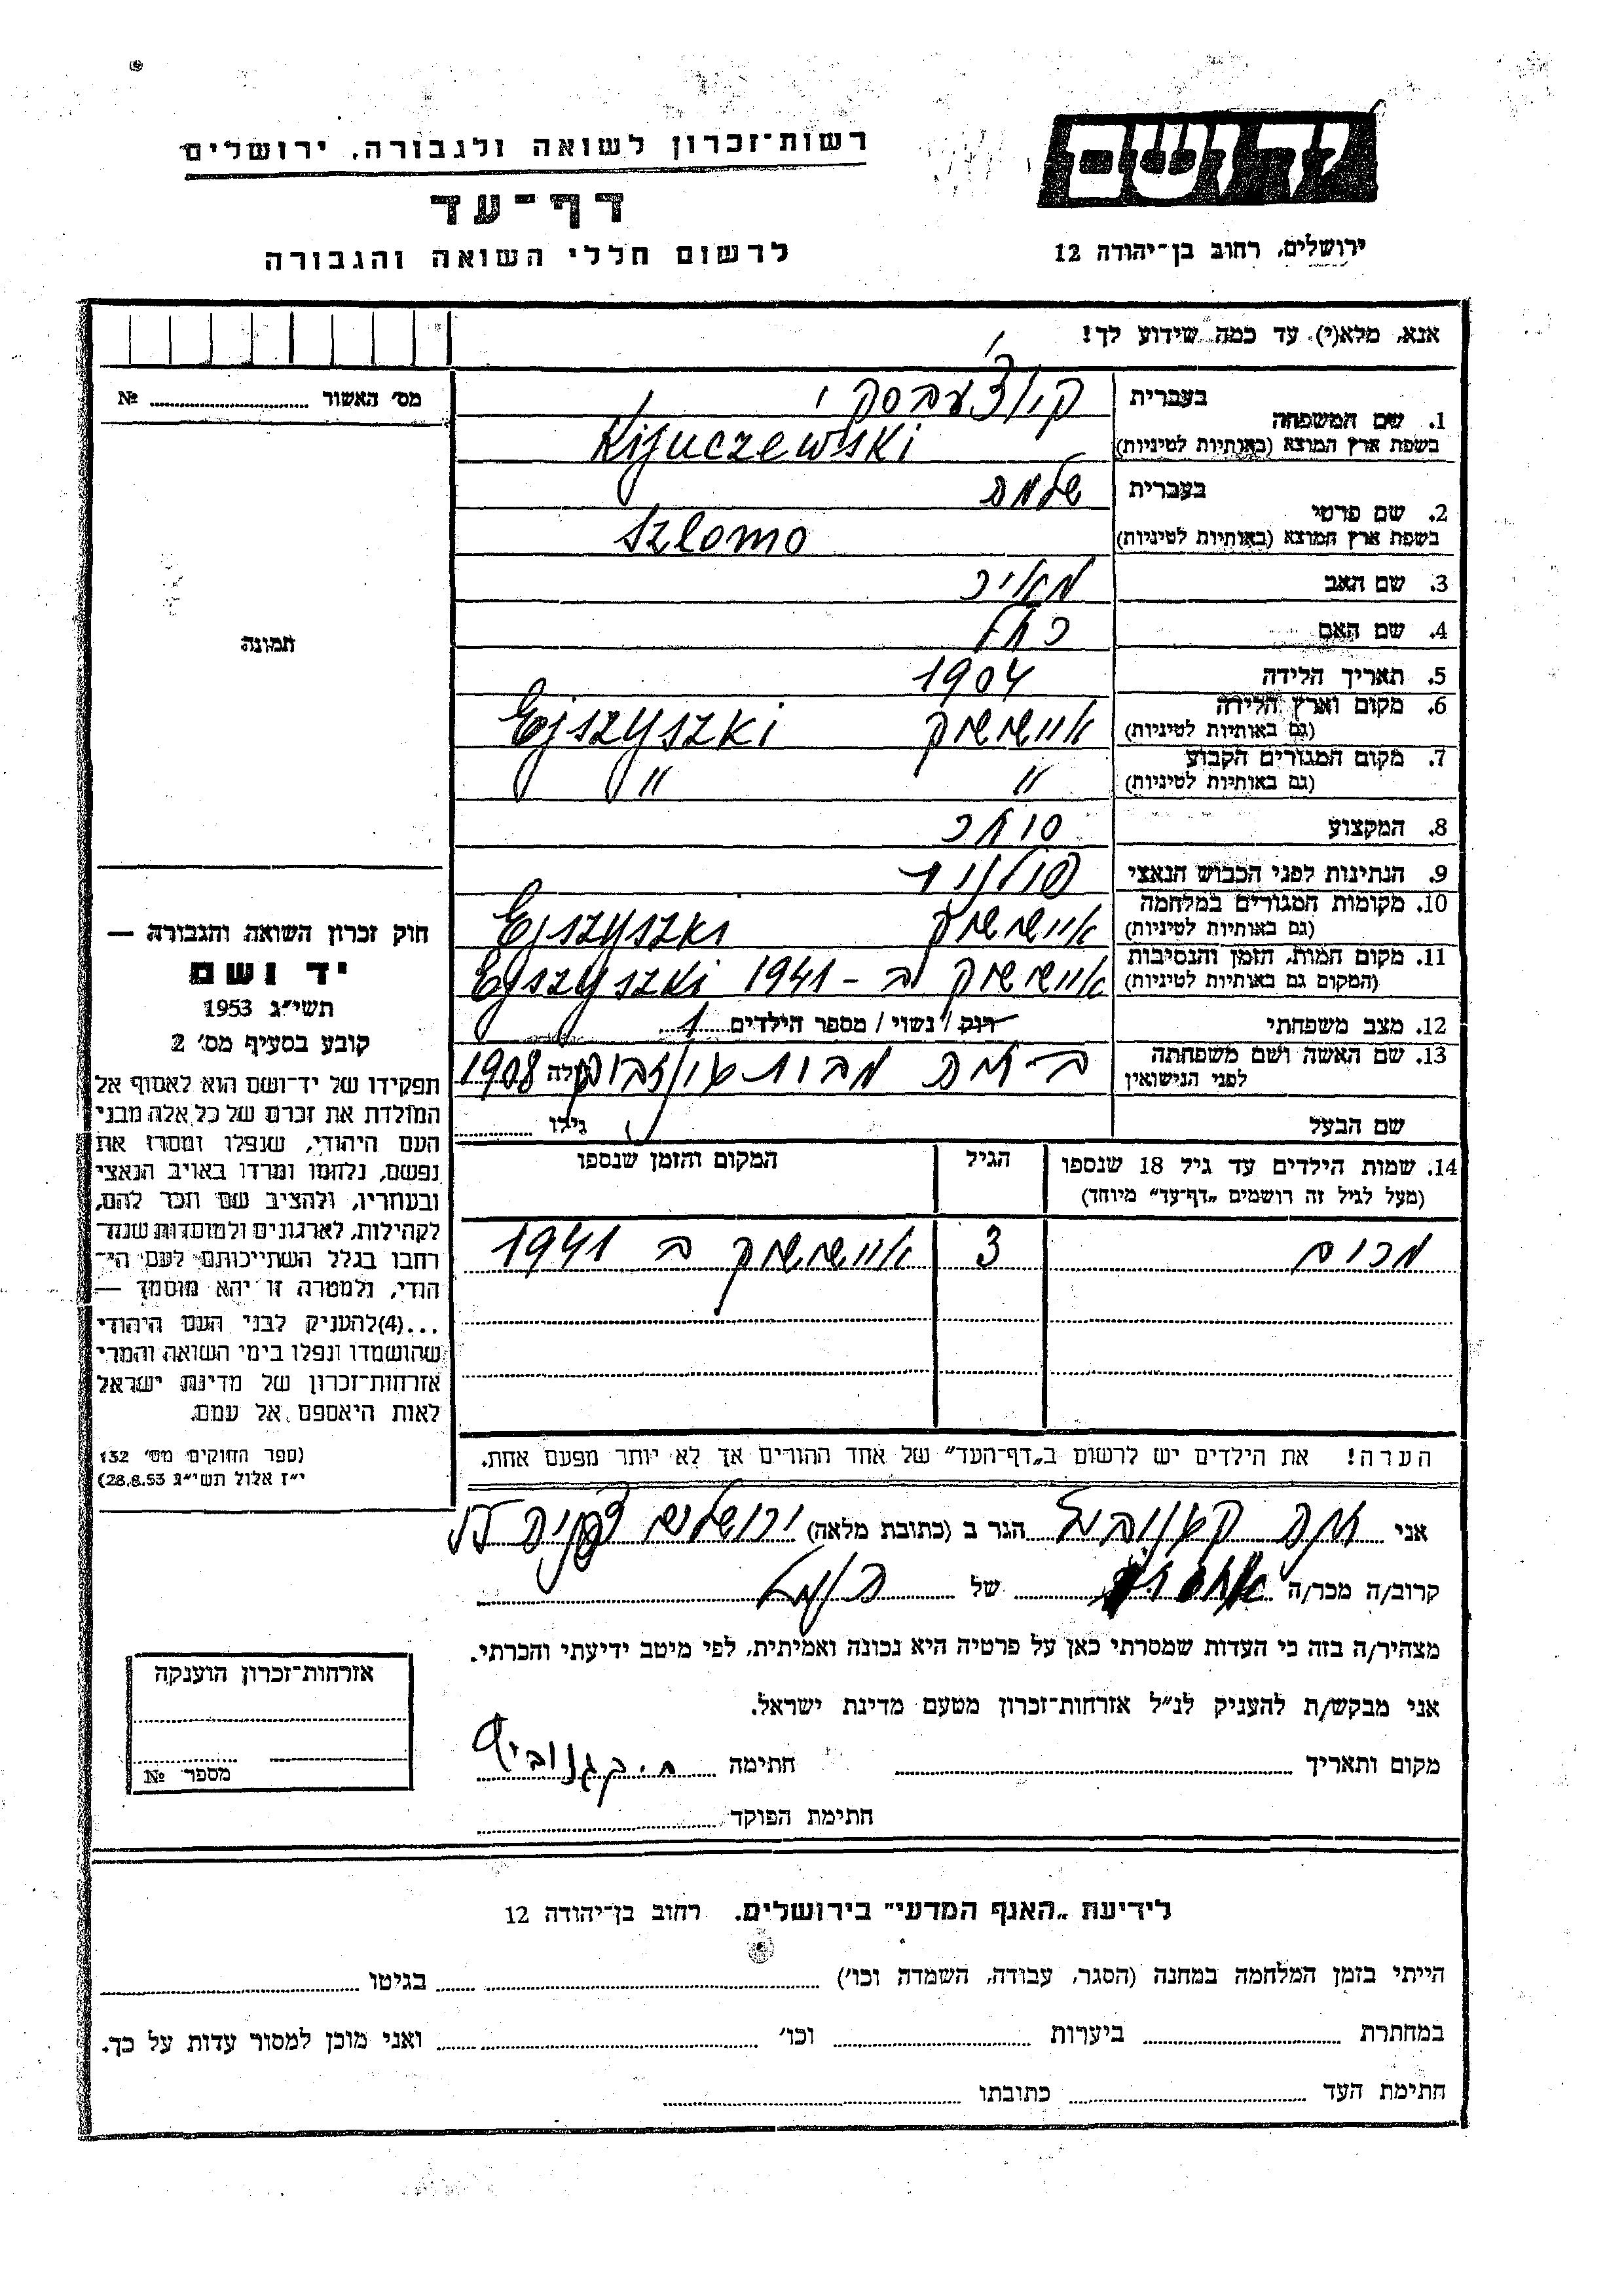 יד ושם
רשות־זכרון לשואה ולגבורה, ירושלים
דף־עד
לרשום חללי השואה והגבורה
ירושלים, רחוב בן־יהודה 12
אנא, מלא(י), עד כמה שידוע לך!
מס׳ האשור ........ №
1. שם המשפחה
בעברית
Kijuczewski
בשפת ארץ המוצא (באותיות לטיניות)
2. שם פרטי
בעברית שלמה
Szlomo
בשפת ארץ המוצא (באותיות לטיניות)
3. שם האב מאיר
4. שם האם רחל
5. תאריך הלידה 1904
6. מקום וארץ הלידה אישישוק Ejszyszki
(גם באותיות לטיניות)
7. מקום המגורים הקבוע " "
(גם באותיות לטיניות)
8. המקצוע סוחר
9. הנתינות לפני הכבוש הנאצי פולנית
10. מקומות המגורים במלחמה אישישוק Ejszyszki
(גם באותיות לטיניות)
11. מקום המות, הזמן והנסיבות אישישוק ב – 1941 Ejszyszki
(המקום גם באותיות לטיניות)
12. מצב משפחתי רוק / נשוי / מספר הילדים 1
13. שם האשה ושם משפחתה
לפני הנישואין
מבית
גילה 1908
שם הבעל
גילו
14. שמות הילדים עד גיל 18 שנספו
(מעל לגיל זה רושמים „דף־עד״ מיוחד)
הגיל
המקום והזמן שנספו
3 אישישוק ב 1941
תמונה
חוק זכרון השואה והגבורה —
יד ושם
תשי״ג 1953
קובע בסעיף מס׳ 2
תפקידו של יד־ושם הוא לאסוף אל
המולדת את זכרם של כל אלה מבני
העם היהודי, שנפלו ומסרו את
נפשם, נלחמו ומרדו באויב הנאצי
ובעוזריו, ולהציב שם וזכר להם,
לקהילות, לארגונים ולמוסדות שנח־
רבו בגלל השתייכותם לעם הי־
הודי, ולמטרה זו יהא מוסמך —
...(4)להעניק לבני העם היהודי
שהושמדו ונפלו בימי השואה והמרי
אזרחות־זכרון של מדינת ישראל
לאות היאספם אל עמם.
(ספר החוקים מס׳ 132
י״ז אלול תשי״ג 28.8.53)
הערה! את הילדים יש לרשום ב„דף־העד״ של אחד ההורים אך לא יותר מפעם אחת.
אני חיה הגר ב (כתובת מלאה) ירושלים
קרוב/ה מכר/ה של
מצהיר/ה בזה כי העדות שמסרתי כאן על פרטיה היא נכונה ואמיתית, לפי מיטב ידיעתי והכרתי.
אני מבקש/ת להעניק לנ״ל אזרחות־זכרון מטעם מדינת ישראל.
מקום ותאריך חתימה
חתימת הפוקד
אזרחות־זכרון הוענקה
מספר №
לידיעת „האגף המדעי״ בירושלים, רחוב בן־יהודה 12
הייתי בזמן המלחמה במחנה (הסגר, עבודה, השמדה וכו׳) בגיטו
במחתרת ביערות וכו׳ ואני מוכן למסור עדות על כך.
חתימת העד כתובתו